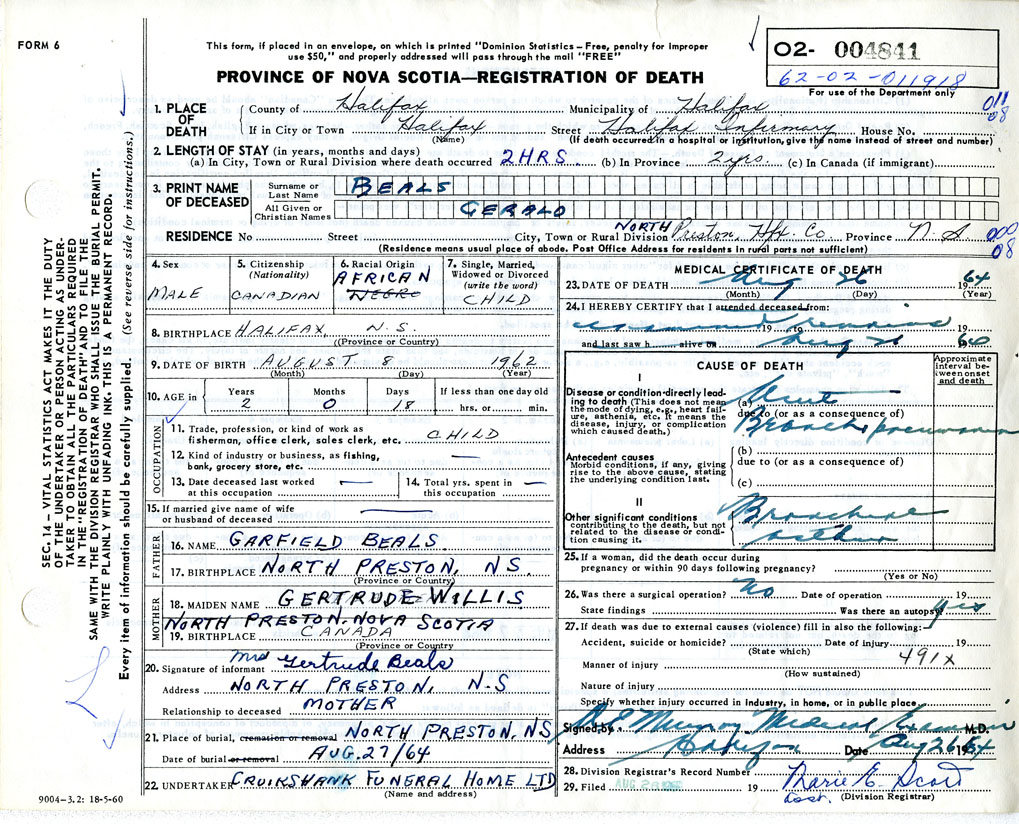 FORM 6
This form, if placed in an envelope, on which is printed "Dominion Statistics – Free, penalty for improper
use $50," and properly addressed will pass through the mail "FREE"
PROVINCE OF NOVA SCOTIA—REGISTRATION OF DEATH
O2- 004841
62-02-011918
For use of the Department only
011
08
1. PLACE OF DEATH
County of Halifax Municipality of Halifax
If in City or Town Halifax Street Halifax Infirmary House No.
(Name) (If death occurred in a hospital or institution, give the name instead of street and number)
2. LENGTH OF STAY (in years, months and days)
(a) In City, Town or Rural Division where death occurred 2HRS. (b) In Province 2yrs. (c) In Canada (if immigrant)
3. PRINT NAME OF DECEASED
Surname or Last Name BEALS
All Given or Christian Names GERALD
RESIDENCE No Street City, Town or Rural Division NORTH Preston, Hfx. Co Province N S
000
08
(Residence means usual place of abode. Post Office Address for residents in rural parts not sufficient)
4. Sex MALE
5. Citizenship (Nationality) CANADIAN
6. Racial Origin AFRICAN NEGRO
7. Single, Married, Widowed or Divorced (write the word) CHILD
8. BIRTHPLACE HALIFAX N.S.
(Province or Country)
9. DATE OF BIRTH AUGUST 8 1962
(Month) (Day) (Year)
10. AGE in Years 2 Months 0 Days 18 If less than one day old hrs. or min.
OCCUPATION
11. Trade, profession, or kind of work as
fisherman, office clerk, sales clerk, etc. CHILD
12. Kind of industry or business, as fishing,
bank, grocery store, etc. —
13. Date deceased last worked
at this occupation —
14. Total yrs. spent in
this occupation —
15. If married give name of wife
or husband of deceased —
FATHER
16. NAME GARFIELD BEALS
17. BIRTHPLACE NORTH PRESTON, NS.
(Province or Country)
MOTHER
18. MAIDEN NAME GERTRUDE WILLIS
NORTH PRESTON, NOVA SCOTIA
19. BIRTHPLACE CANADA
(Province or Country)
20. Signature of informant Mrs Gertrude Beals
Address NORTH PRESTON, N.S
Relationship to deceased MOTHER
21. Place of burial, cremation or removal NORTH PRESTON, NS
Date of burial or removal AUG.27/64
22. UNDERTAKER CRUIKSHANK FUNERAL HOME LTD
(Name and address)
9004-3.2: 18-5-60
SEC. 14 – VITAL STATISTICS ACT MAKES IT THE DUTY
OF THE UNDERTAKER OR PERSON ACTING AS UNDER-
TAKER TO OBTAIN ALL THE PARTICULARS REQUIRED
IN THE "REGISTRATION OF DEATH" AND TO FILE THE
SAME WITH THE DIVISION REGISTRAR WHO SHALL ISSUE THE BURIAL PERMIT.
WRITE PLAINLY WITH UNFADING INK. THIS IS A PERMANENT RECORD.
Every item of information should be carefully supplied. (See reverse side for instructions.)
MEDICAL CERTIFICATE OF DEATH
23. DATE OF DEATH Aug 26 1964
(Month) (Day) (Year)
24. I HEREBY CERTIFY that I attended deceased from:
19 to 19
and last saw h alive on Aug 26 64
CAUSE OF DEATH
Approximate interval between onset and death
I
Disease or condition directly lead-
ing to death (This does not mean
the mode of dying, e.g., heart fail-
ure, asthenia, etc. It means the
disease, injury, or complication
which caused death.)
(a) Acute
due to (or as a consequence of)
Broncho pneumonia
Antecedent causes
Morbid conditions, if any, giving
rise to the above cause, stating
the underlying condition last.
(b)
due to (or as a consequence of)
(c)
II
Other significant conditions
contributing to the death, but not
related to the disease or condi-
tion causing it.
Bronchial
asthma
25. If a woman, did the death occur during
pregnancy or within 90 days following pregnancy?
(Yes or No)
26. Was there a surgical operation? No Date of operation 19
State findings Was there an autopsy? yes
27. If death was due to external causes (violence) fill in also the following:
Accident, suicide or homicide? Date of injury 19
(State which)
491x
Manner of injury
(How sustained)
Nature of injury
Specify whether injury occurred in industry, in home, or in public place
Signed by Murray Medical Examiner M.D.
Address Halifax Date Aug 26 1964
28. Division Registrar's Record Number
29. Filed 19 Marie E. Scott
Asst. (Division Registrar)